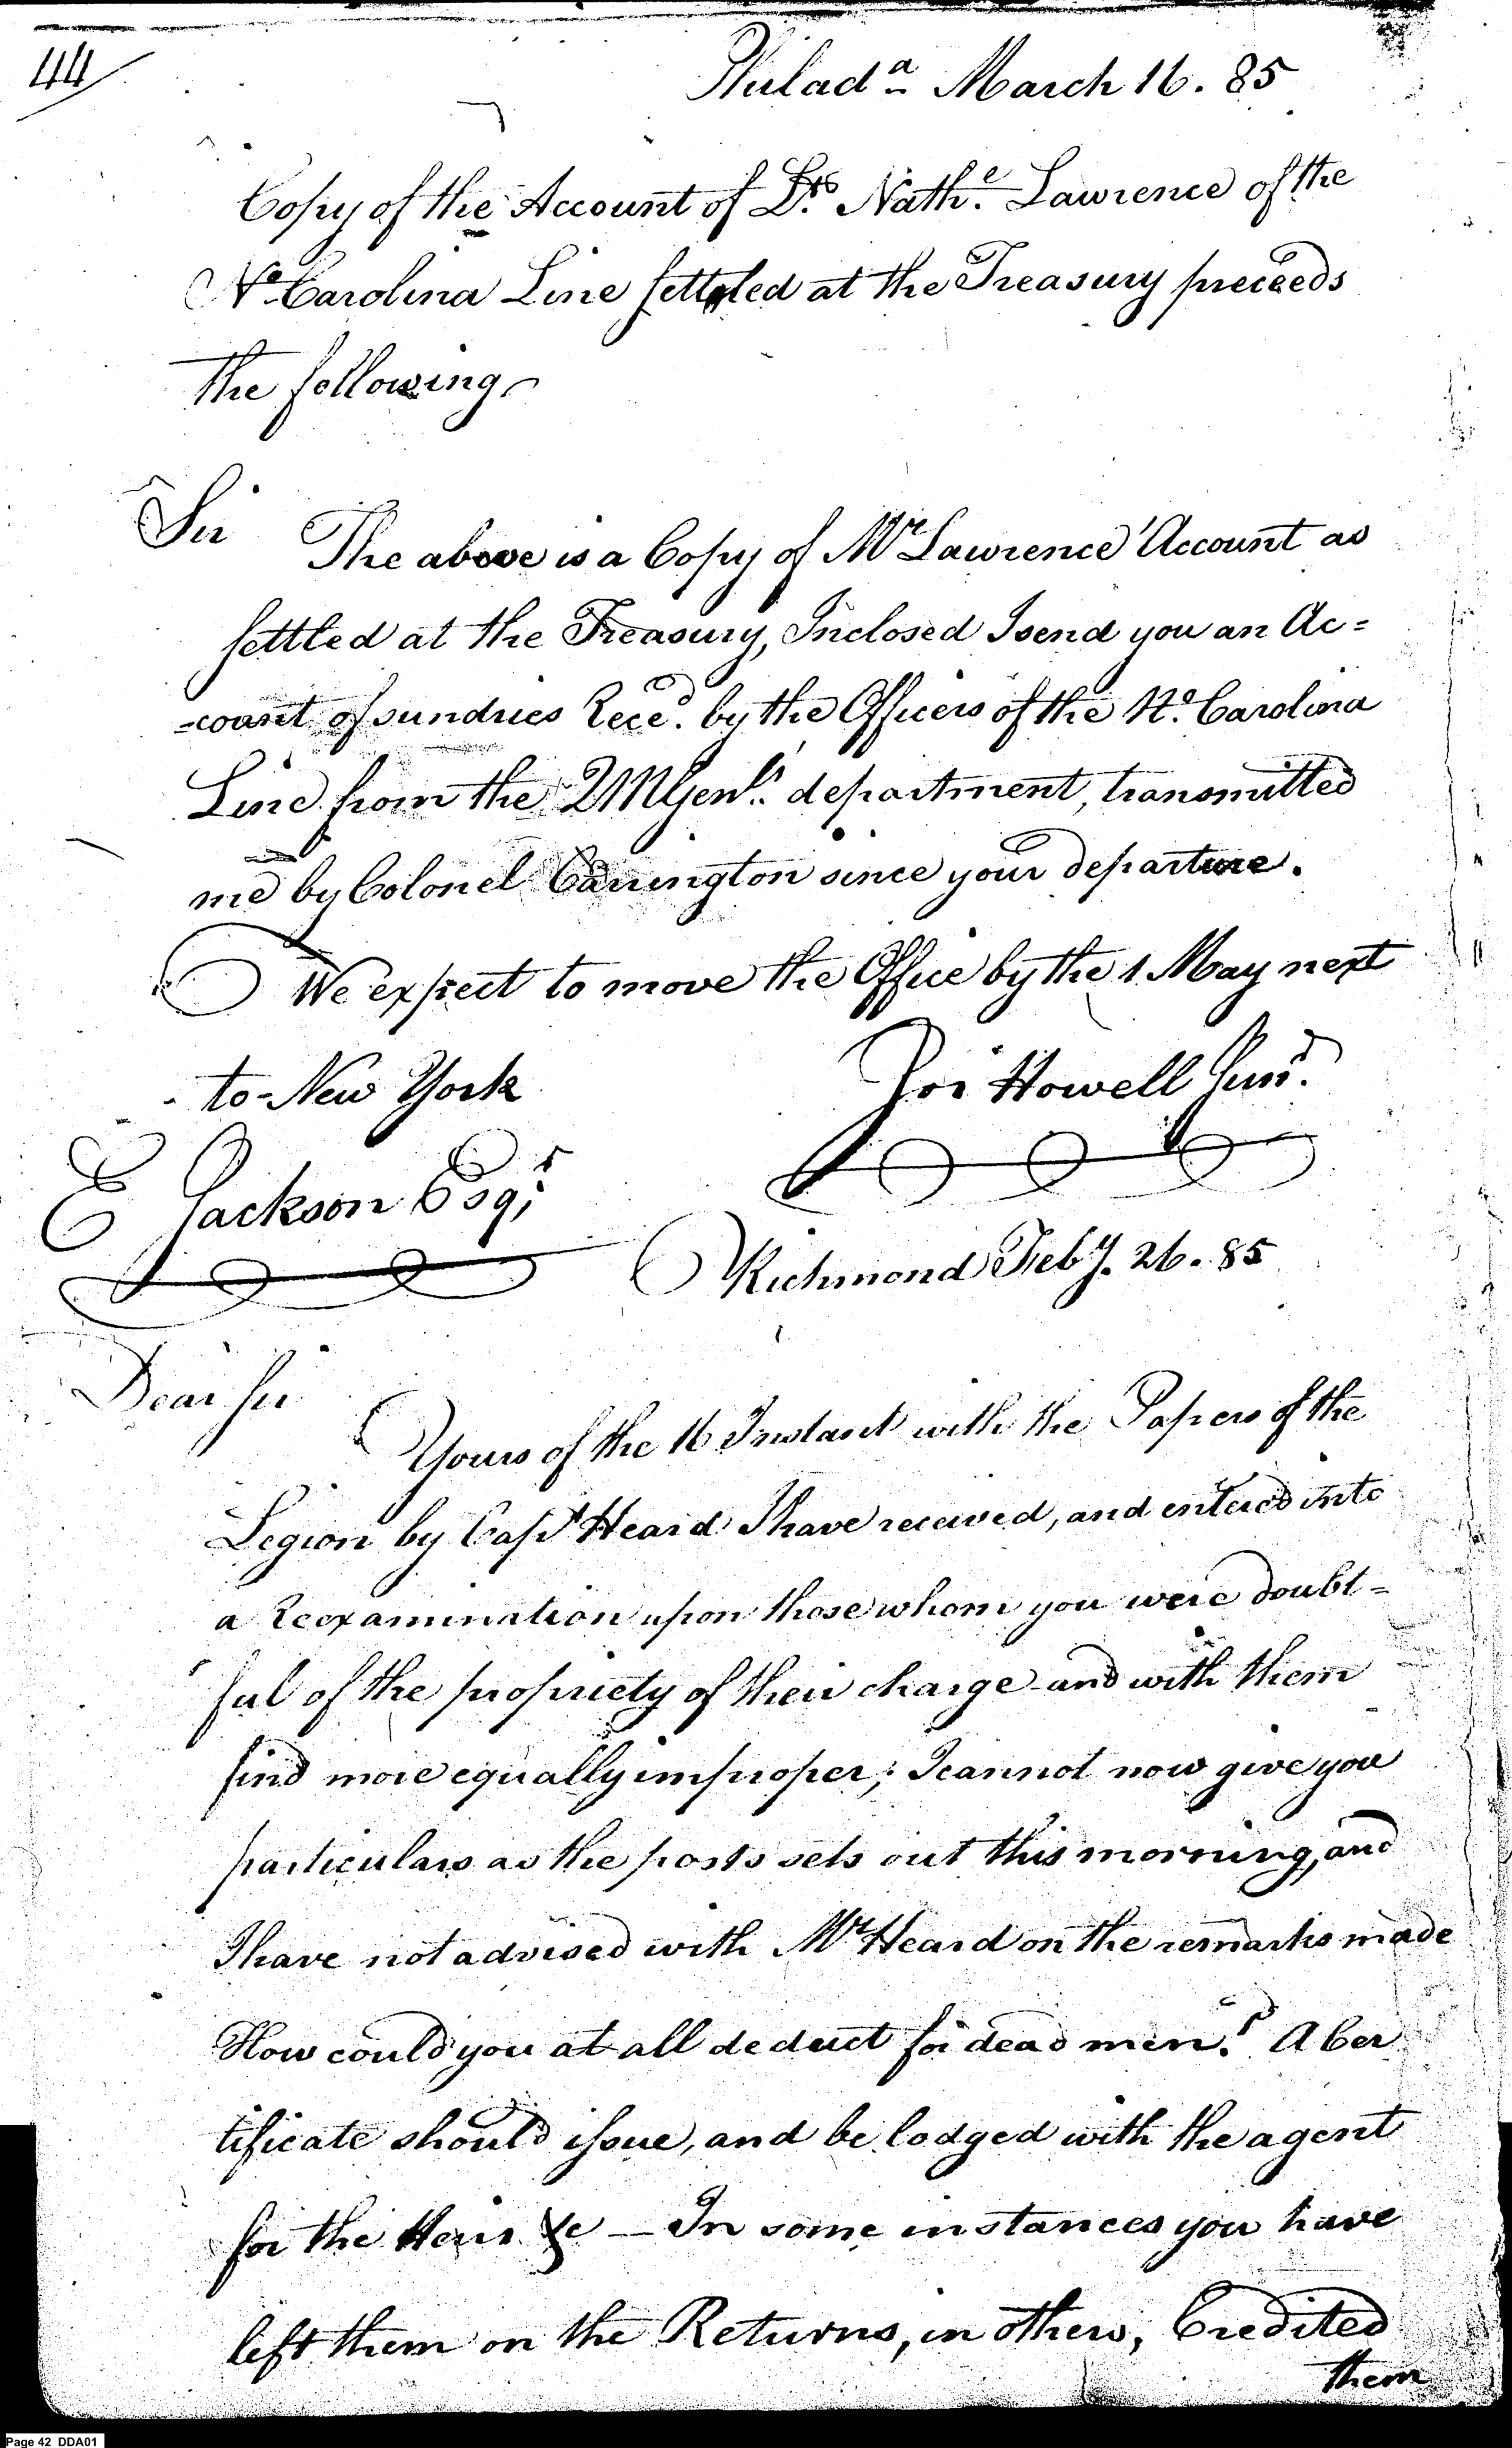 44
Philad.a March 16. 85
Copy of the Account of Lts. Nath.l Lawrence of the
No. Carolina Line settled at the Treasury preceeds
the following
Sir The above is a Copy of Mr Lawrence Account as
settled at the Treasury, Inclosed I send you an Ac=
=count of sundries Rece.d by the Officers of the No. Carolina
Line from the QMGenls. department, transmitted
me by Colonel Carrington since your departure.
We expect to move the Office by the 1 May next
to New York
Jos Howell Junr.
E Jackson Esqr
Richmond Feby. 26. 85
Dear Sir
Yours of the 16 Instant with the Papers of the
Legion by Capt Heard I have received, and entered into
a Reexamination upon those whom you were doubt=
ful of the propriety of their charge and with them
find more equally improper; I cannot now give you
particulars as the posts sets out this morning, and
I have not advised with Mr Heard on the remarks made
How could you at all deduct for dead men? A Cer
tificate should issue, and be lodged with the agent
for the Heirs &c — In some instances you have
left them on the Returns, in others, Credited
them
Page 42 DDA01